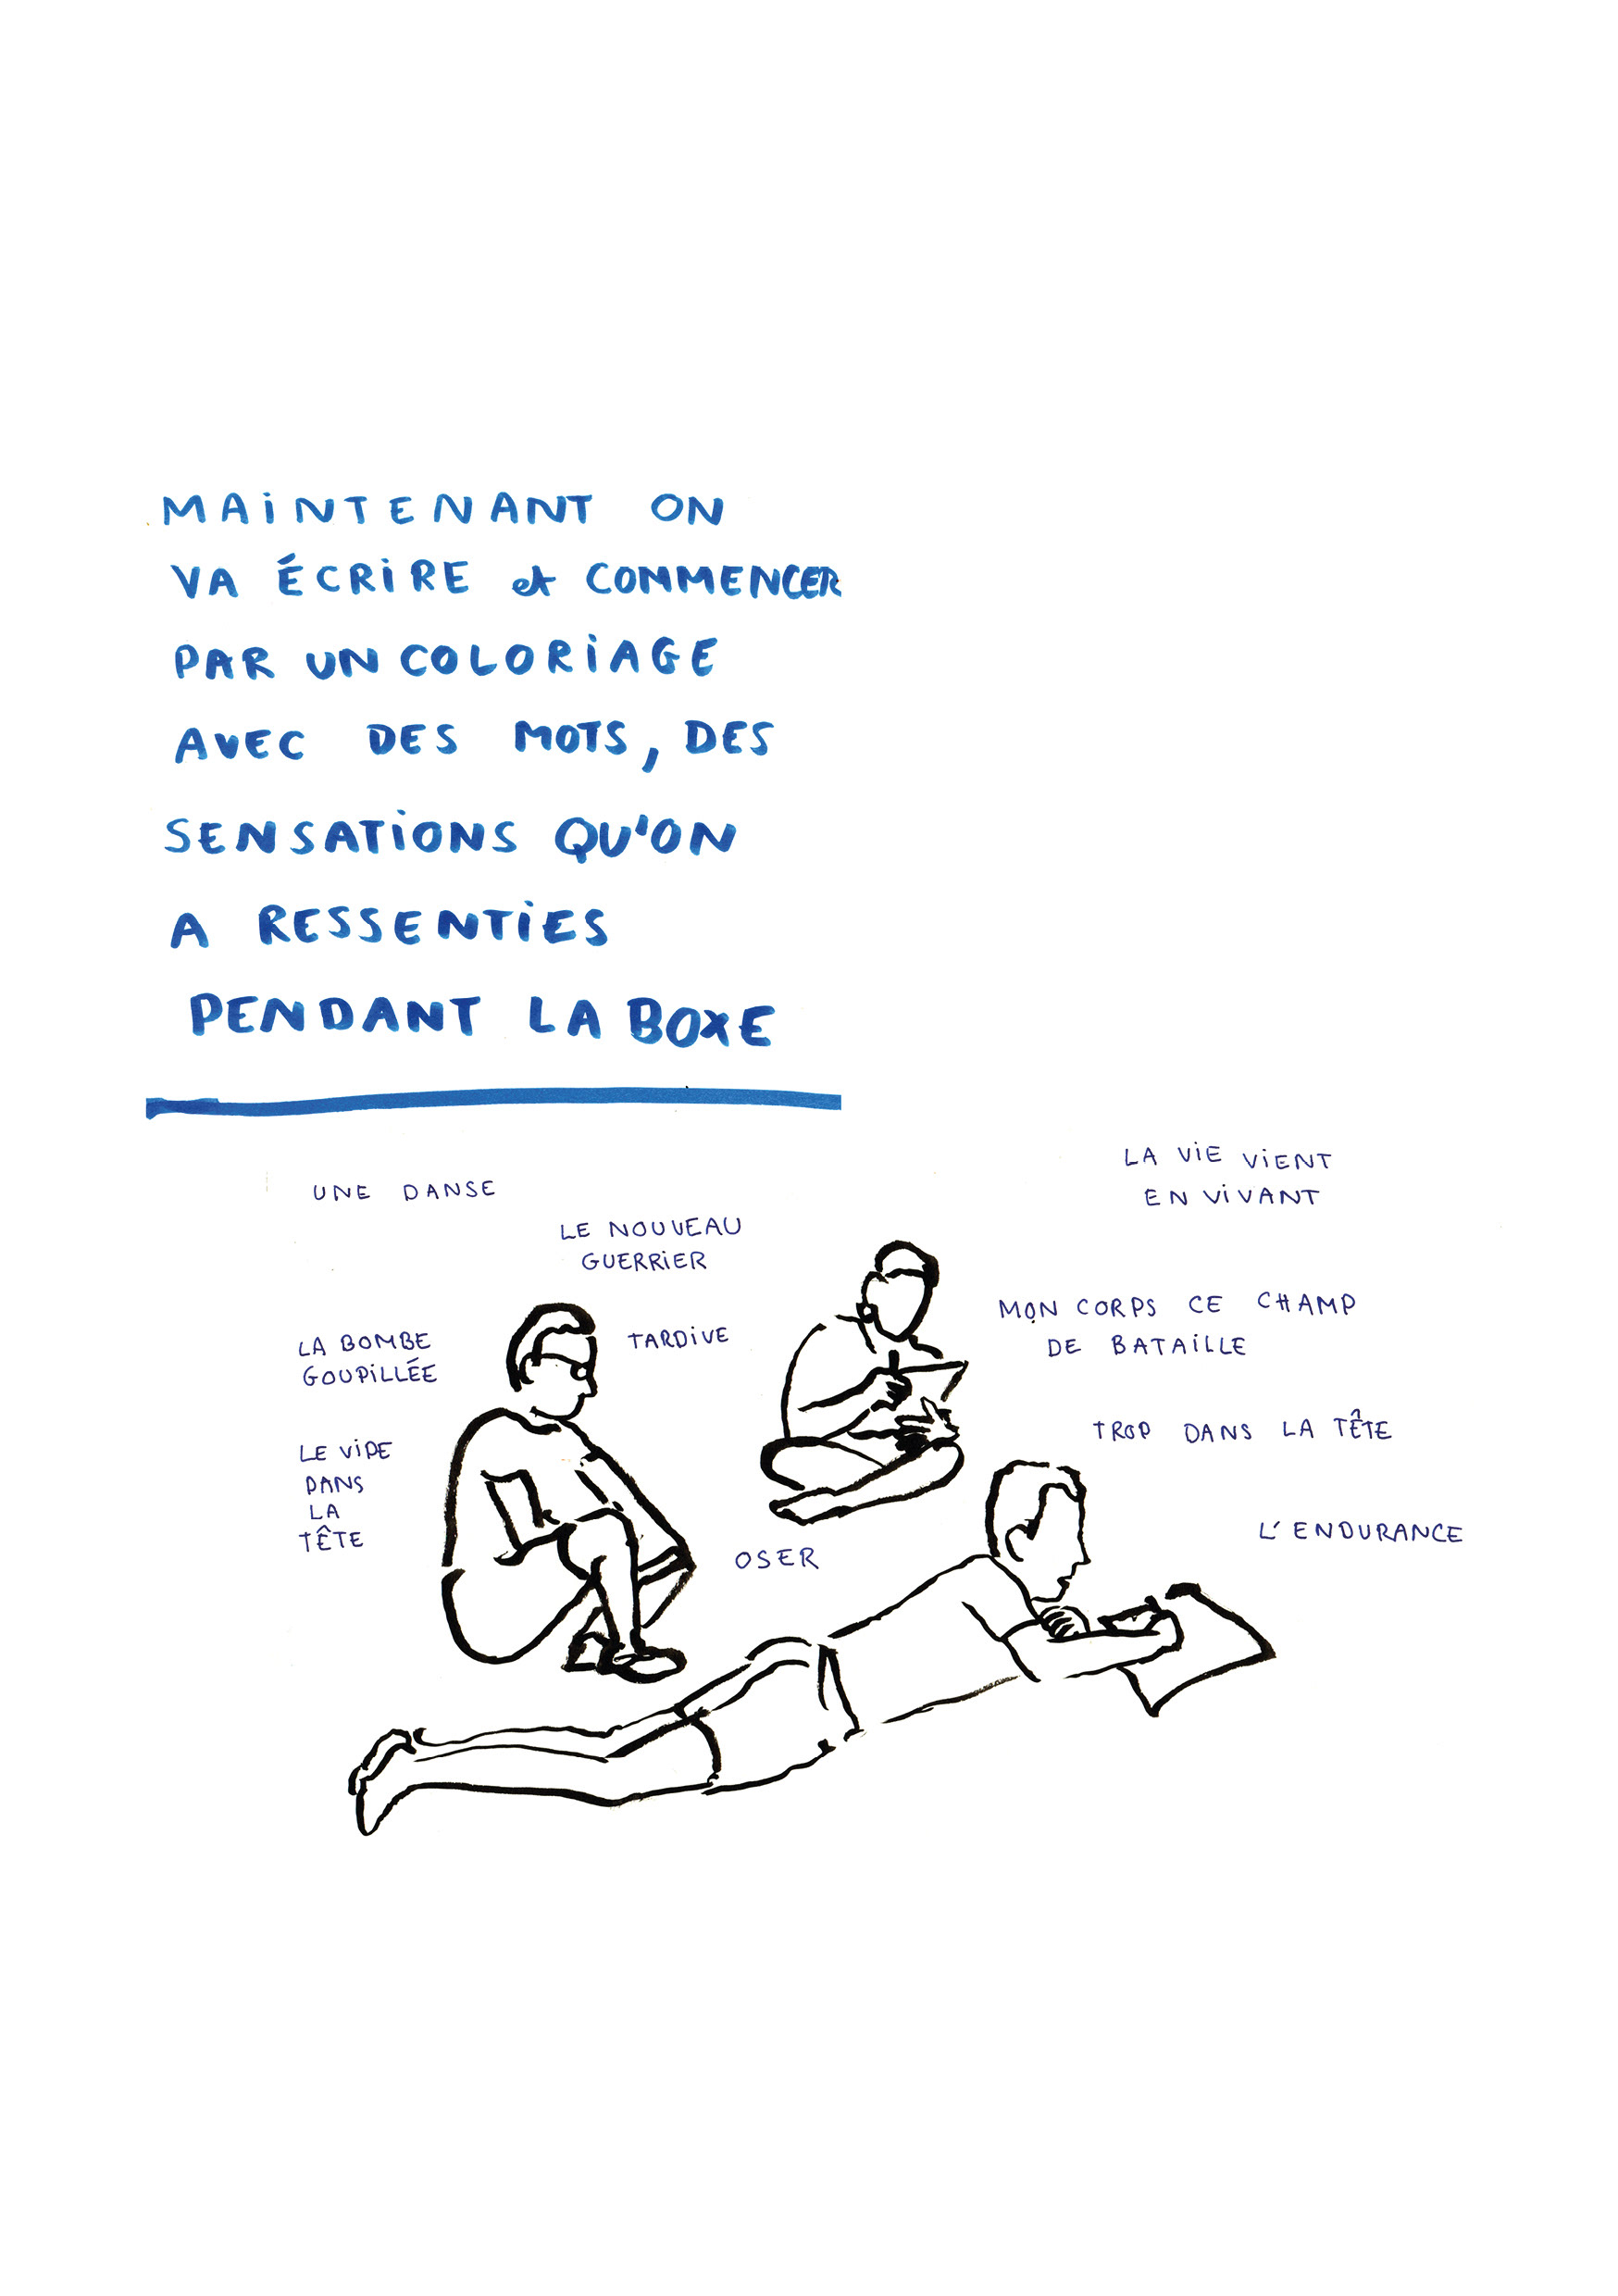 MAINTENANT ON
VA ÉCRIRE et COMMENCER
PAR UN COLORIAGE
AVEC DES MOTS, DES
SENSATIONS QU'ON
A RESSENTIES
PENDANT LA BOXE
UNE DANSE
LE NOUVEAU
GUERRIER
LA BOMBE
GOUPILLÉE
TARDIVE
LE VIDE
DANS
LA
TÊTE
OSER
LA VIE VIENT
EN VIVANT
MON CORPS CE CHAMP
DE BATAILLE
TROP DANS LA TÊTE
L'ENDURANCE